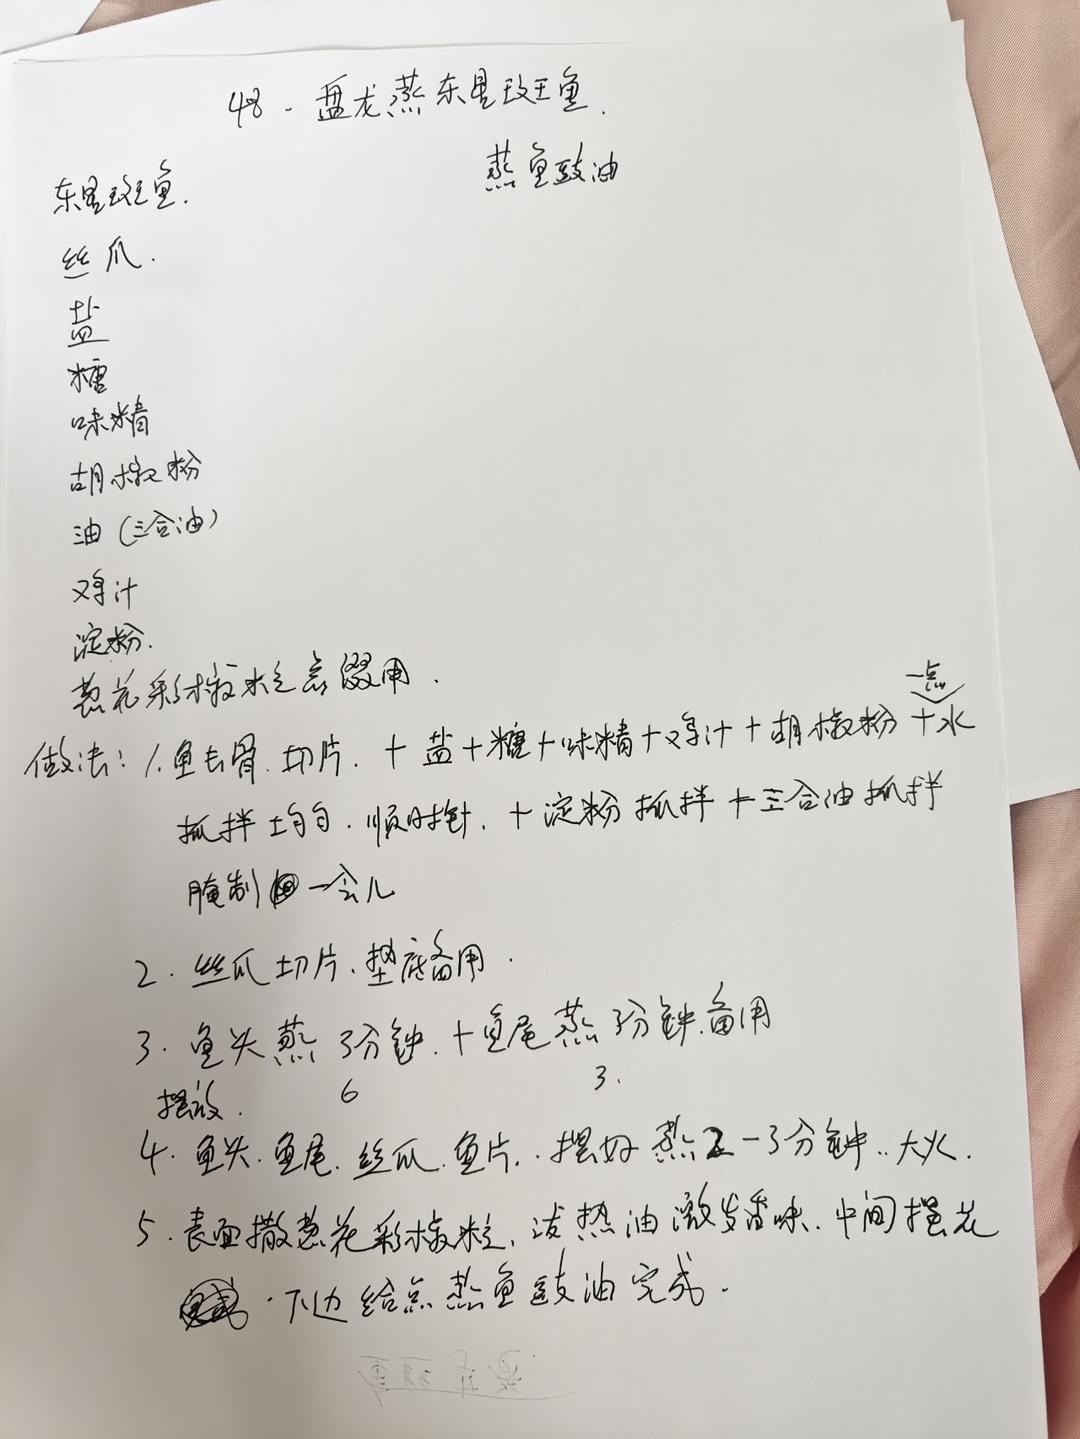 48. 盘龙蒸东星斑鱼.
蒸鱼豉油
东星斑鱼.
丝瓜.
盐
糖
味精
胡椒粉
油（三合油）
鸡汁
淀粉.
葱花彩椒粒点缀用.
一点
做法：1.鱼去骨.切片. +盐+糖+味精+鸡汁+胡椒粉+水
抓拌均匀.顺时针.+淀粉抓拌+三合油抓拌
腌制一会儿
2. 丝瓜切片.垫底备用.
3. 鱼头蒸3分钟.+鱼尾蒸3分钟.备用
摆放. 6 3.
4. 鱼头.鱼尾.丝瓜.鱼片..摆好蒸2-3分钟..大火.
5. 表面撒葱花彩椒粒.泼热油激发香味.中间摆花
.下边给点蒸鱼豉油完成.